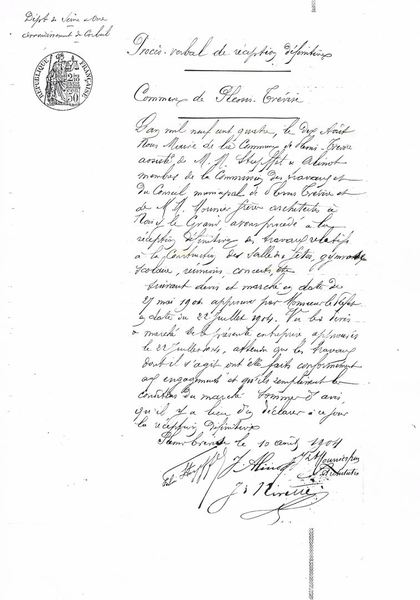 Dépt de Seine et Oise
Arrondissement de Corbeil
RÉPUBLIQUE FRANÇAISE
50
Procès-verbal de réception définitive
Commune de Plessis-Trévise
L'an mil neuf cent quatre, le dix Août
Nous Maire de la Commune de Plessis-Trévise
assisté de M. M.
membres de la Commission des travaux et
du Conseil municipal de Plessis Trévise et
de M. M. Mounier frères architectes à
Noisy le Grand, avons procédé à la
réception définitive des travaux relatifs
à la construction des Salles des fêtes, gymnastique
scolaire, réunions, concerts, etc
suivant devis et marché en date du
27 mai 1904 approuvé par Monsieur le Préfet
en date du 22 juillet 1904. Vu les devis
marché de la présente entreprise approuvés
le 22 juillet 1904, attendu que les travaux
dont il s'agit ont été faits conformément
aux engagements et qu'ils remplissent les
conditions du marché sommes d'avis,
qu'il y a lieu d'en déclarer à ce jour
la réception définitive
Plessis-Trévise le 10 août 1904